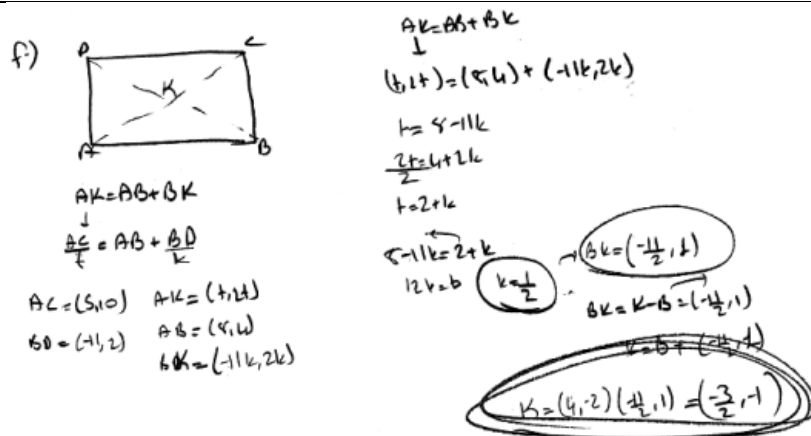 f)
D C
K
A B
AK=AB+BK
↓
AC/t = AB + BD/k
AC=(5,10) AK=(t,2t)
BD=(-11,2) AB=(8,4)
BK=(-11k,2k)
AK=AB+BK
↓
(t,2t)=(8,4)+(-11k,2k)
t=8-11k
2t=4+2k
2
t=2+k
8-11k=2+k
12k=6
k=1/2
BK=(-11/2,1)
BK=K-B=(-11/2,1)
K=B+(-11/2,1)
K=(4,-2)(-11/2,1)=(-3/2,-1)